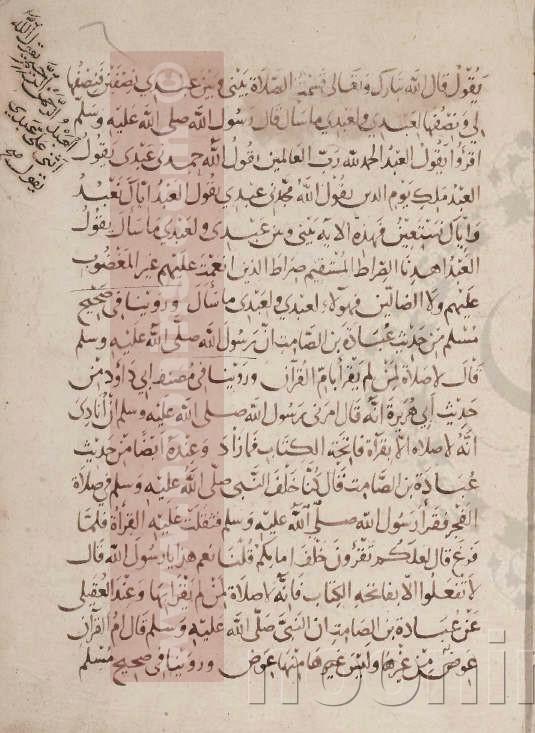 يقول قال الله تبارك وتعالى قسمت الصلاة بيني وبين عبدي نصفين فنصفها
لي ونصفها لعبدي ولعبدي ما سأل قال رسول الله صلى الله عليه وسلم
اقرؤا يقول العبد الحمد لله رب العالمين يقول الله حمدني عبدي يقول
العبد ملك يوم الدين يقول الله مجدني عبدي يقول العبد اياك نعبد
واياك نستعين فهذه الاية بيني وبين عبدي ولعبدي ما سأل يقول
العبد اهدنا الصراط المستقيم صراط الذين انعمت عليهم غير المغضوب
عليهم ولا الضالين فهولاء لعبدي ولعبدي ما سأل وروينا في صحيح
مسلم من حديث عبادة بن الصامت ان رسول الله صلى الله عليه وسلم
قال لا صلاة لمن لم يقرا بام القرآن وروينا في مصنف ابي داود من
حديث أبي هريرة انه قال امرني رسول الله صلى الله عليه وسلم ان أنادي
انه لا صلاة الا بقراة فاتحة الكتاب فما زاد وعنده ايضا من حديث
عبادة بن الصامت قال كنا خلف النبي صلى الله عليه وسلم في صلاة
الفجر فقرأ رسول الله صلى الله عليه وسلم فثقلت عليه القراة فلما
فرغ قال لعلكم تقرون خلف امامكم قلنا نعم هذا يا رسول الله قال
لا تفعلوا الا بفاتحة الكتاب فانه لا صلاة لمن لم يقرا بها وعند العقيلي
عن عبادة بن الصامت ان النبي صلى الله عليه وسلم قال ام القرآن
عوض من غيرها وليس غيرها منها عوض وروينا في صحيح مسلم